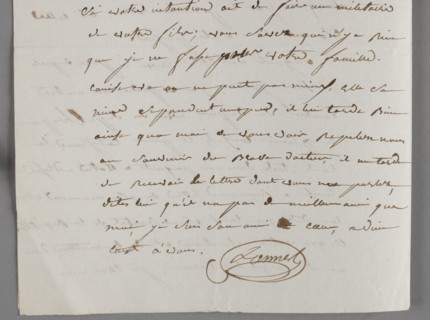 Si votre intention est de faire un militaire
de votre fils, vous savez qu'il n'y a rien
que je ne fasse pour votre famille.
Louise va on ne peut pas mieux, elle
il lui tarde bien
ainsi qua moi de vous voir Rapeles nous
au souvenir du Brave docteur il me tard
de Recevoir la lettre dont vous me parlez,
dites lui qu'il na pas de meilleur ami que
moi, je suis son ami de cœur, adieu
tout à vous.
Lannes